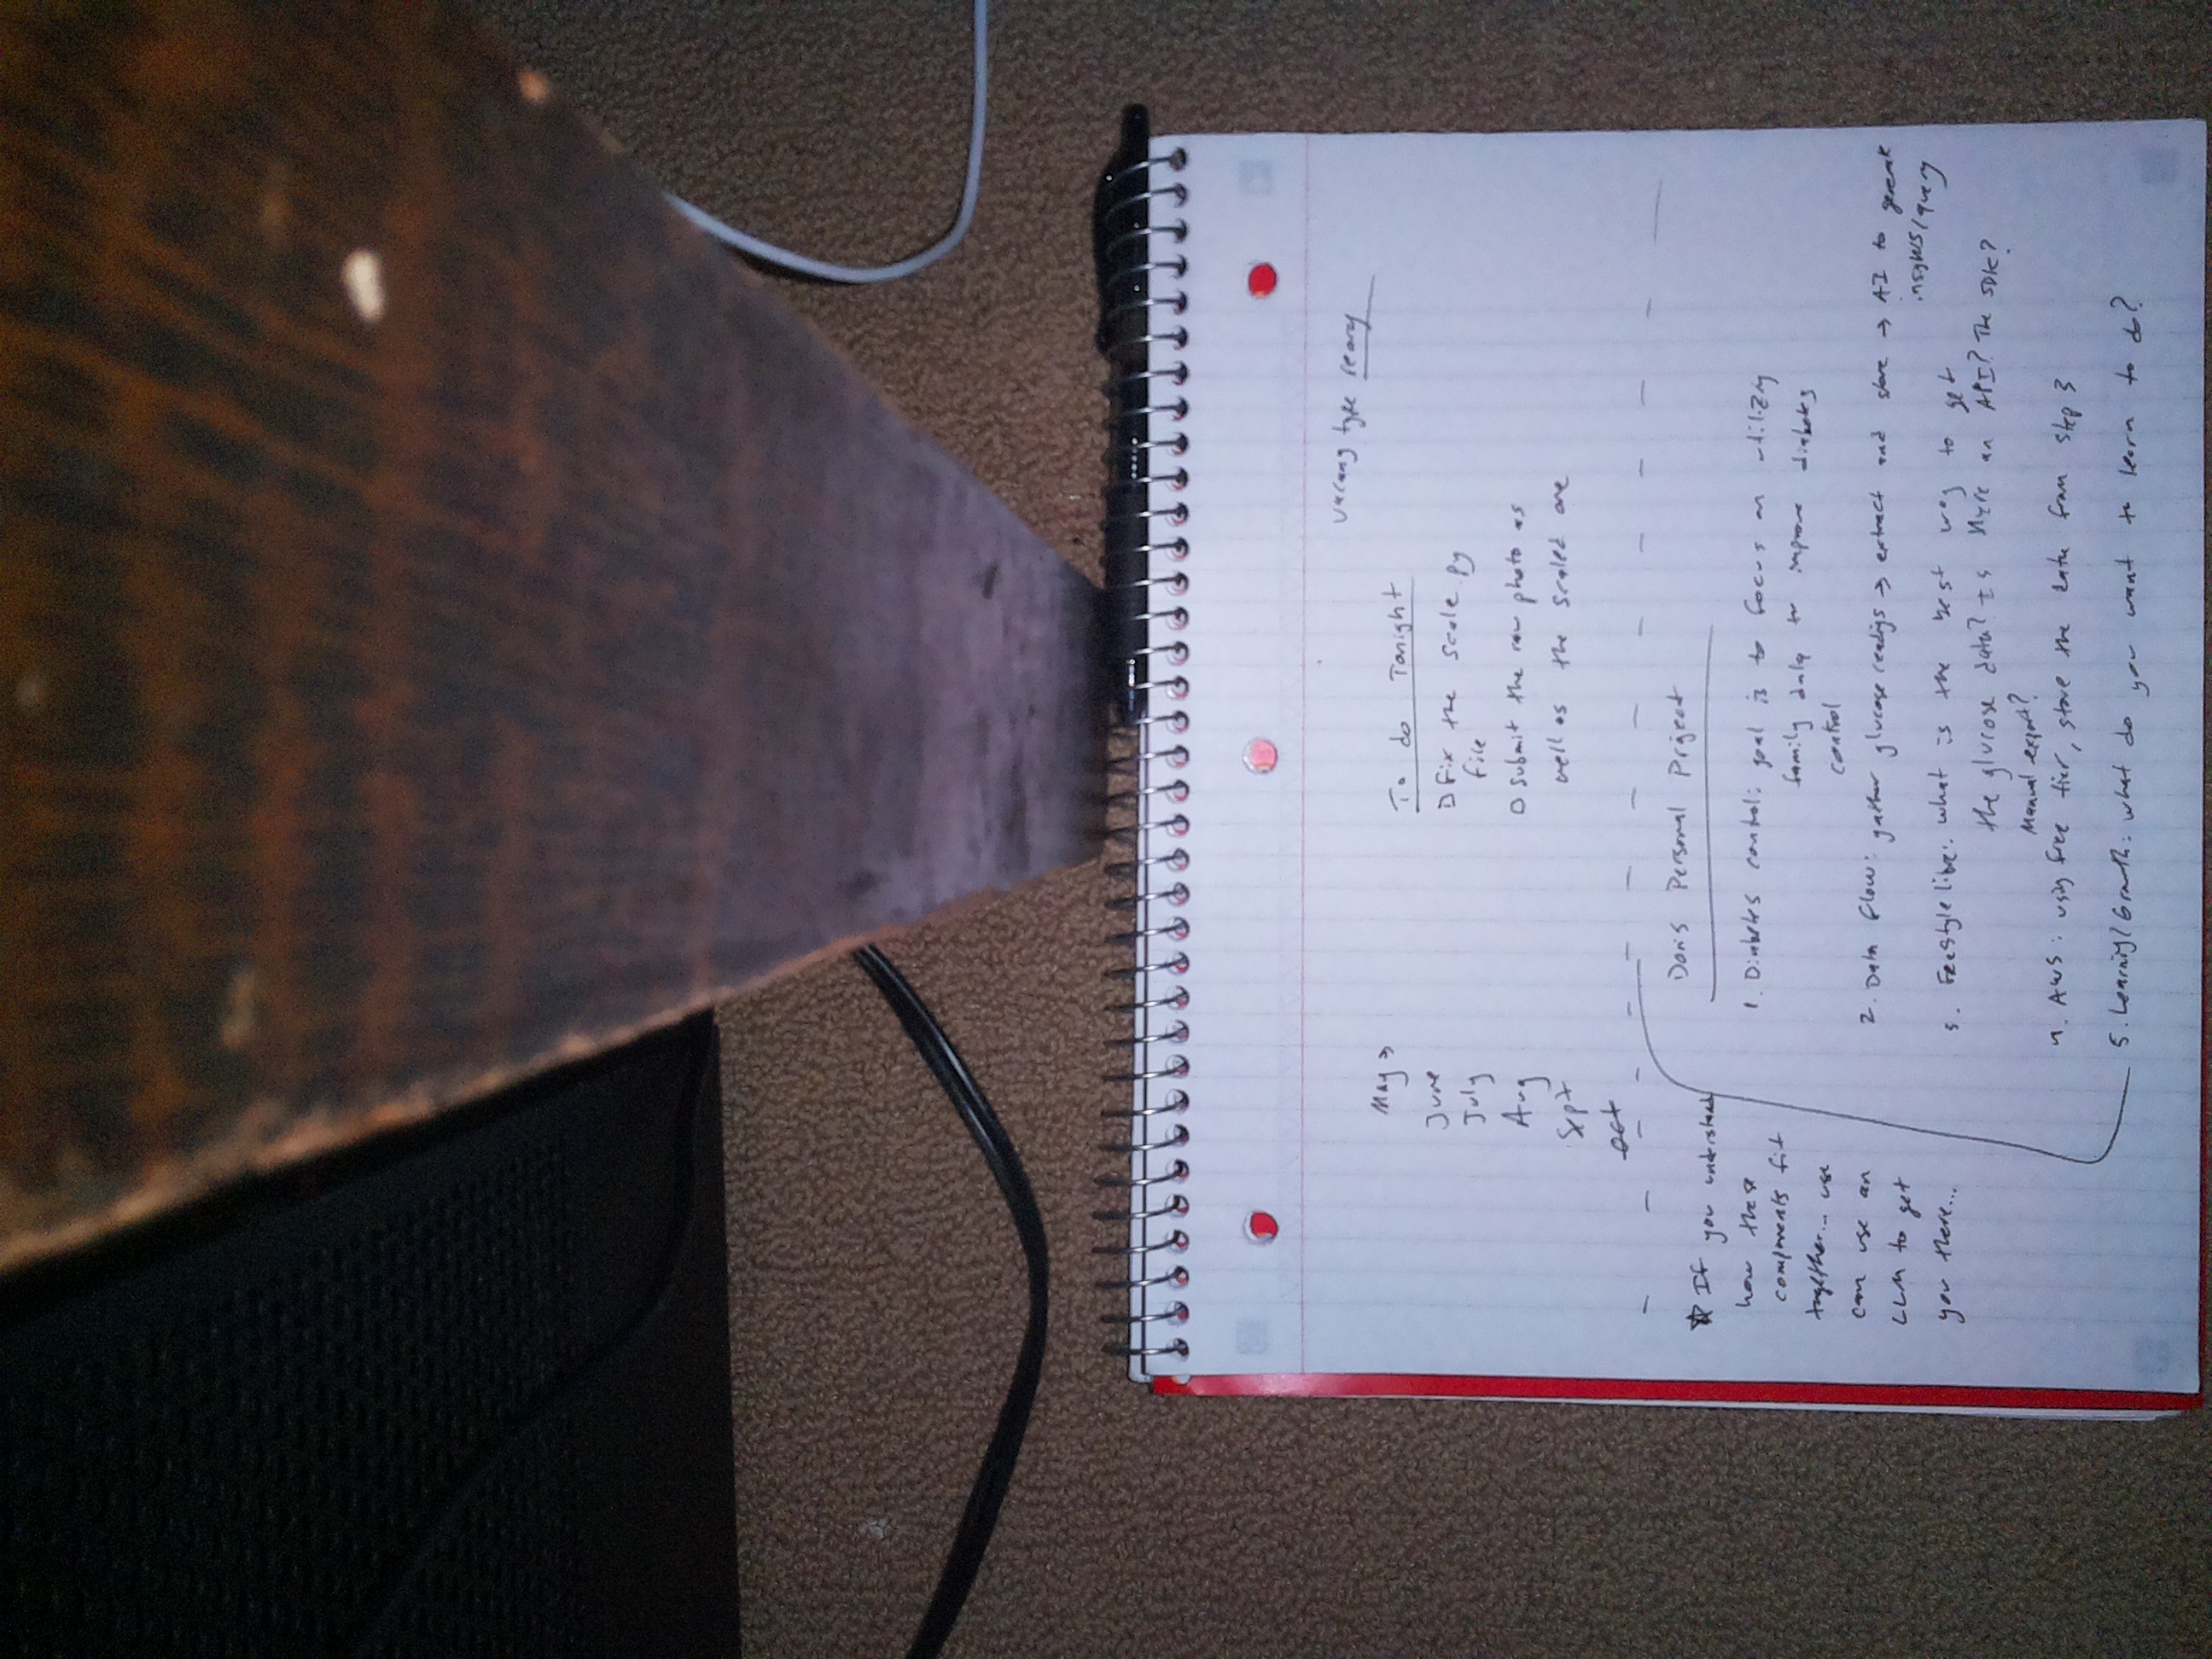 vacany type
To do Tonight
Fix the scale.py
file
Submit the raw photo as
well as the scaled one
May
June
July
Aug
Sept
Oct
Don's Personal Project
1. Diabetes control: goal is to focus on utilizing
family data to improve diabetes
control
2. Data flow: gather glucose readings → extract and store → AI to generate
insights/query
3. Freestyle libre: what is the best way to get
the glucose data? Is there an API? The SDK?
Manual export?
4. AWS: using free tier, store the data from step 3
5. Learning/Growth: what do you want to learn to do?
If you understand
how these
components fit
together... use
can use an
LLM to get
you there...